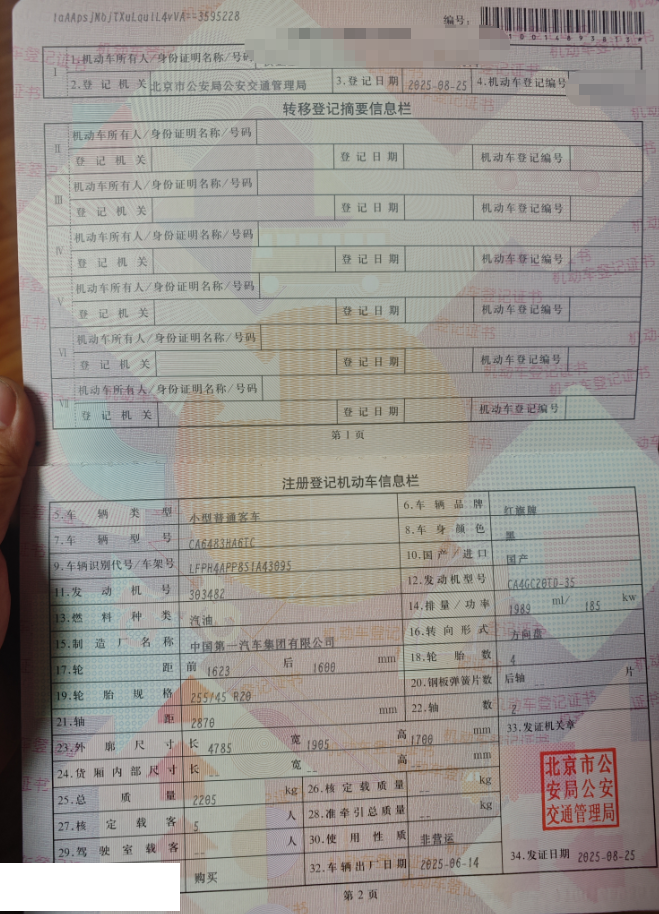 1aAApsjNbjTXuLquILL4vVA==3595228
编号:
I
1.机动车所有人/身份证明名称/号码
2.登记机关 北京市公安局公安交通管理局 3.登记日期 2025-08-25 4.机动车登记编号
转移登记摘要信息栏
II 机动车所有人/身份证明名称/号码
登记机关 登记日期 机动车登记编号
III 机动车所有人/身份证明名称/号码
登记机关 登记日期 机动车登记编号
IV 机动车所有人/身份证明名称/号码
登记机关 登记日期 机动车登记编号
V 机动车所有人/身份证明名称/号码
登记机关 登记日期 机动车登记编号
VI 机动车所有人/身份证明名称/号码
登记机关 登记日期 机动车登记编号
VII 机动车所有人/身份证明名称/号码
登记机关 登记日期 机动车登记编号
第1页
注册登记机动车信息栏
5.车辆类型 小型普通客车 6.车辆品牌 红旗牌
7.车辆型号 CA6483HA6TC 8.车身颜色 黑
9.车辆识别代号/车架号 LFPH4APP8S1A43095 10.国产/进口 国产
11.发动机号 303482 12.发动机型号 CA4GC20TD-35
13.燃料种类 汽油 14.排量/功率 1989 ml/ 185 kw
15.制造厂名称 中国第一汽车集团有限公司 16.转向形式 方向盘
17.轮距 前 1623 后 1600 mm 18.轮胎数 4
19.轮胎规格 255/45 R20 20.钢板弹簧片数 后轴 -- 片
21.轴距 2870 mm 22.轴数 2
23.外廓尺寸 长 4785 宽 1905 高 1700 mm 33.发证机关章
24.货厢内部尺寸 长 -- 宽 -- 高 -- mm
25.总质量 2205 kg 26.核定载质量 -- kg
27.核定载客 5 人 28.准牵引总质量 -- kg
29.驾驶室载客 -- 人 30.使用性质 非营运
购买 32.车辆出厂日期 2025-06-14 34.发证日期 2025-08-25
北京市公
安局公安
交通管理局
第2页